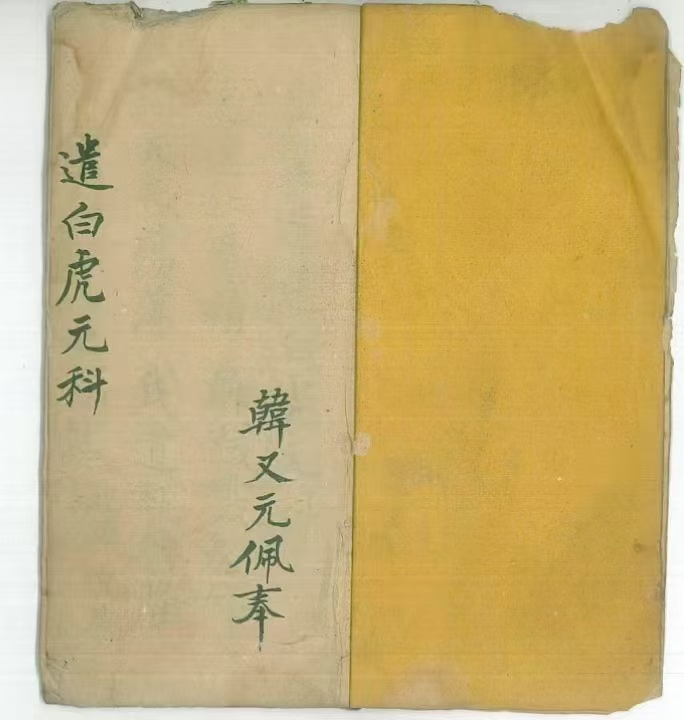 遣白虎元科
韓又元佩奉